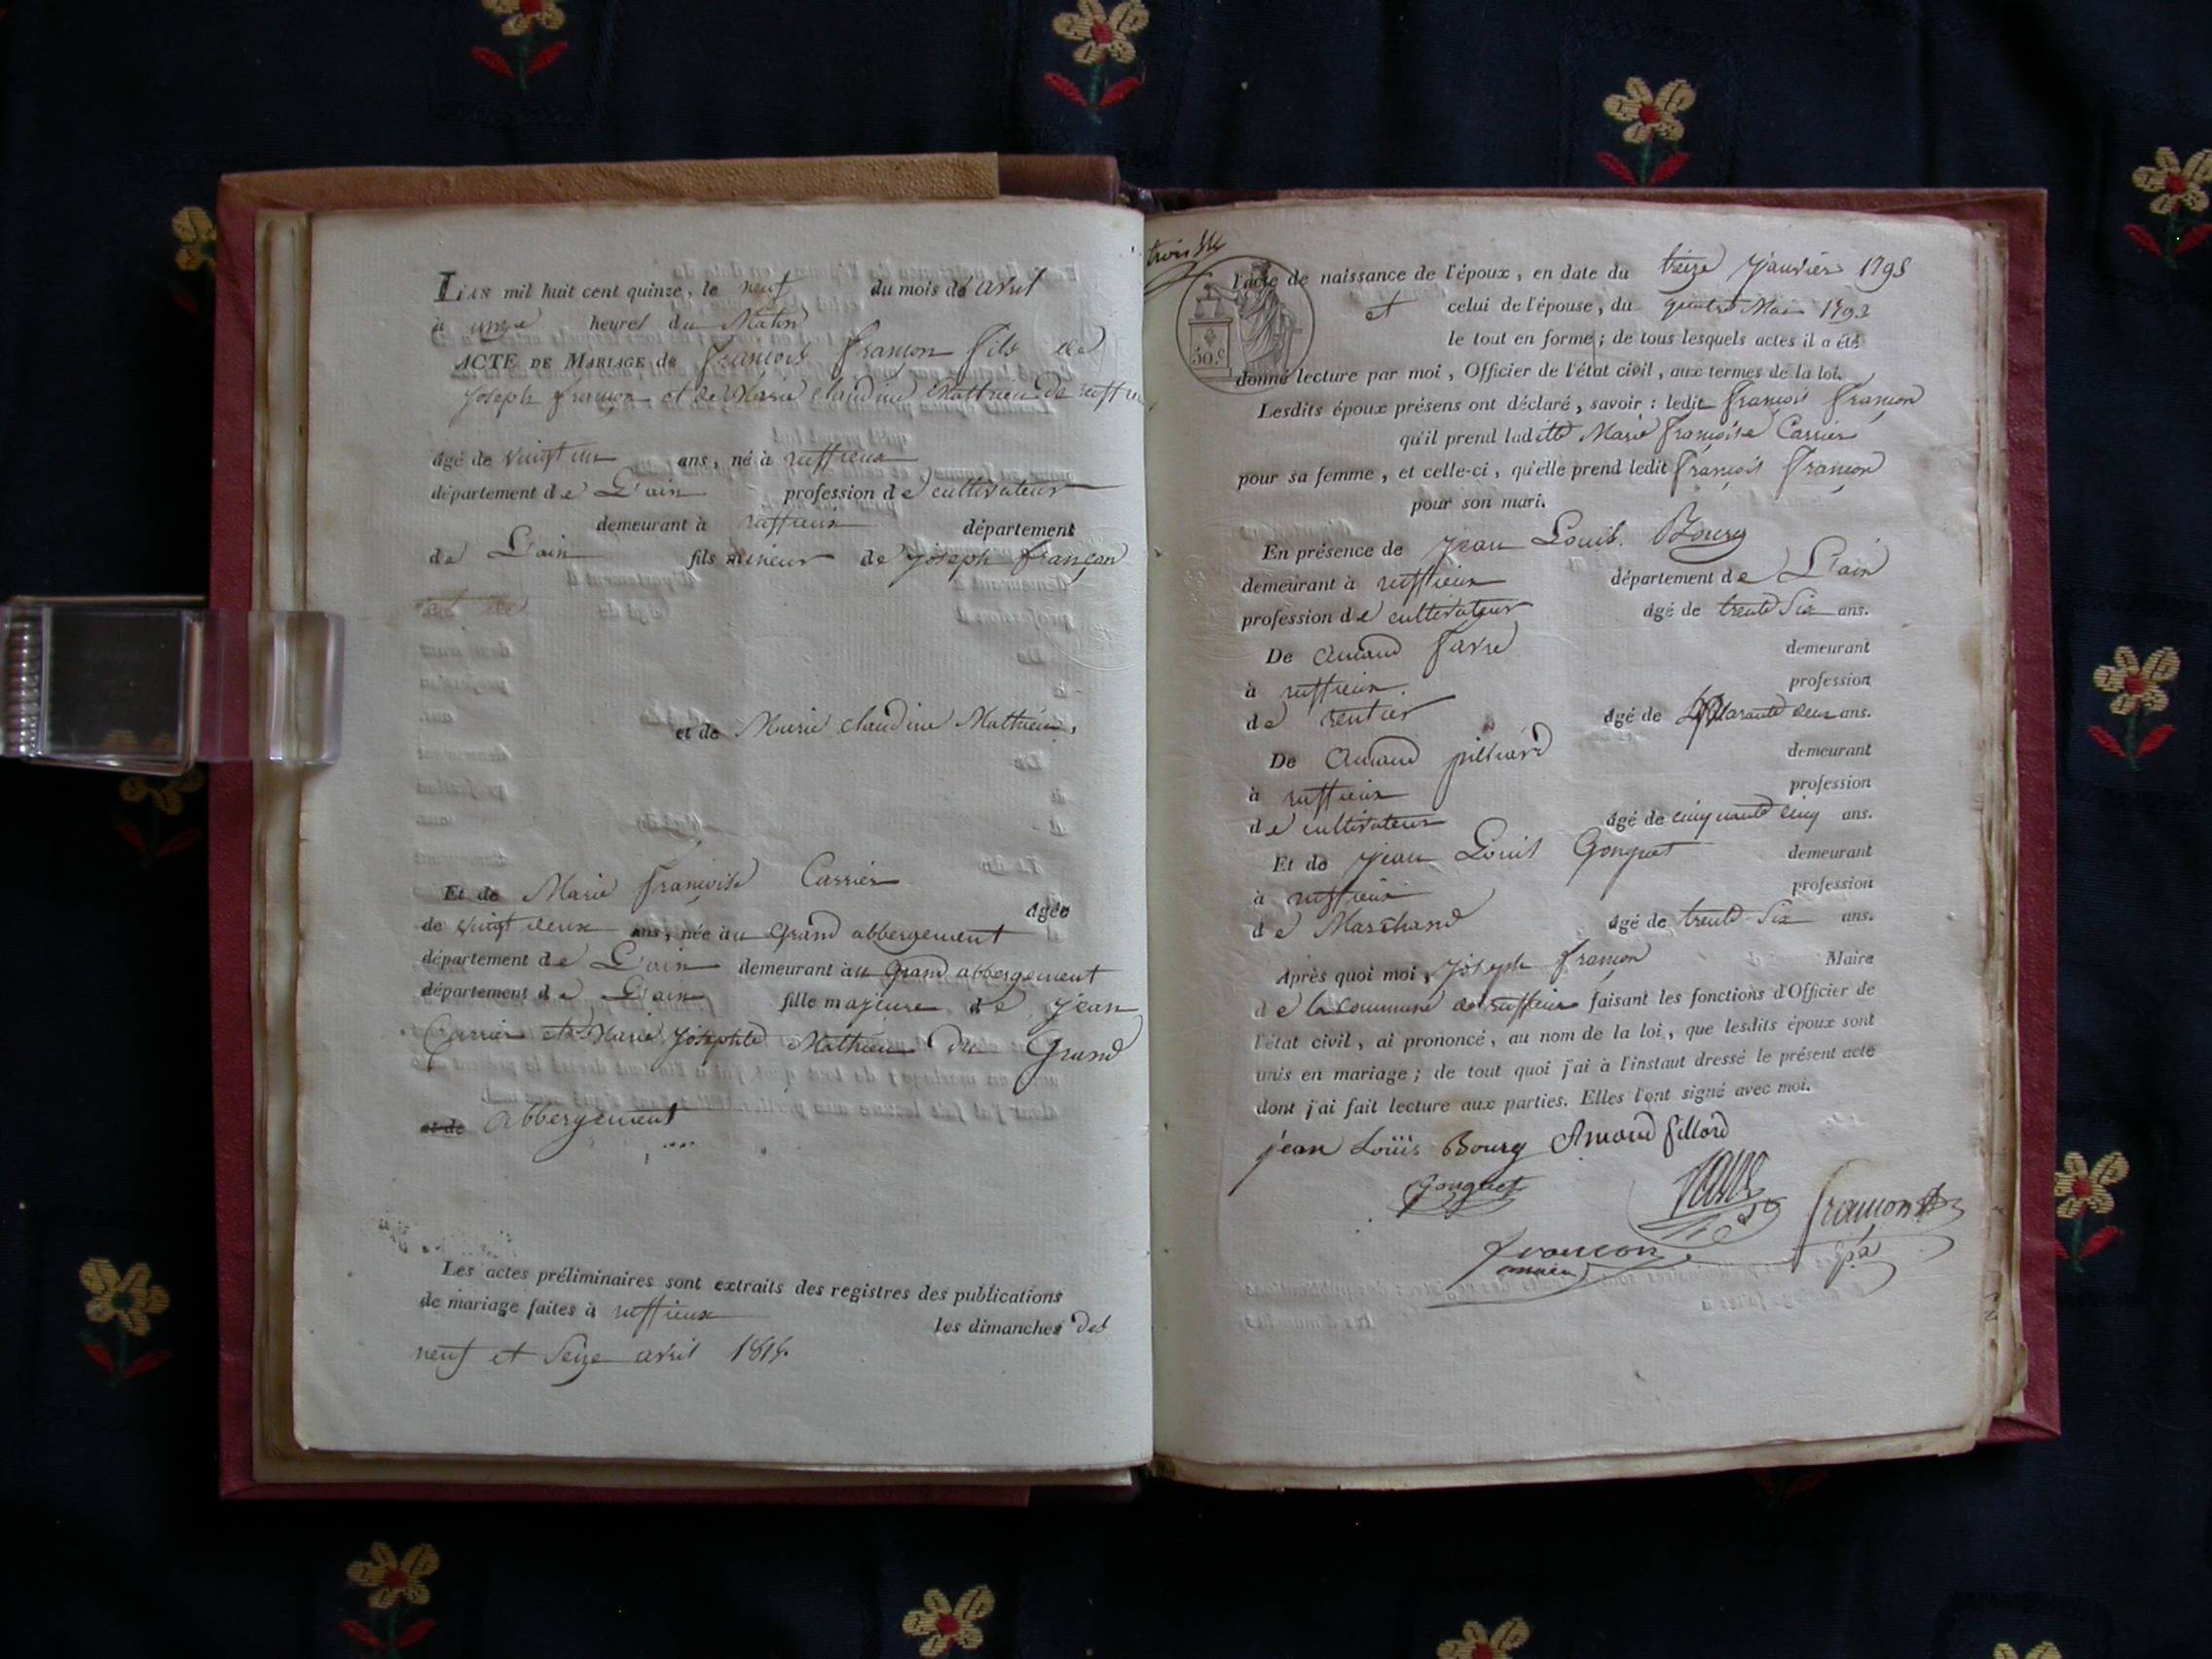 L'AN mil huit cent quinze, le neuf du mois de avril
à onze heures du Matin
ACTE DE MARIAGE de françois françon fils de
joseph françon et de Marie claudine Mathieu de ruffieu
âgé de vingt un ans, né à ruffieux
département de L'ain profession de cultivateur
demeurant à ruffieux département
de L'ain fils mineur de joseph françon
et de
et de Marie claudine Mathieu,
Et de Marie françoise Carrier
âgée
de vingt deux ans, née au Grand abbergement
département de L'ain demeurant au Grand abbergement
département de L'ain fille majeure de jean
Carrier et Marie josephte Mathieu du Grand
et de abbergement
Les actes préliminaires sont extraits des registres des publications
de mariage faites à ruffieux
les dimanches des
neuf et Seize avril 1815.
trois
50 c
l'acte de naissance de l'époux, en date du treize janvier 1795
et celui de l'épouse, du Mai 1793
le tout en forme; de tous lesquels actes il a été
donné lecture par moi, Officier de l'état civil, aux termes de la loi.
Lesdits époux présens ont déclaré, savoir : ledit françois françon
qu'il prend laditte Marie françoise Carrier
pour sa femme, et celle-ci, qu'elle prend ledit françois françon
pour son mari.
En présence de jean Louis Bourg
demeurant à ruffieux département de L'ain
profession de cultivateur âgé de trente Six ans.
De Amand favre demeurant
à ruffieux. profession
de rentier âgé de quarante deux ans.
De Amand pilliard demeurant
à ruffieux profession
de cultivateur âgé de cinquante cinq ans.
Et de jean Louis Gonguet demeurant
à ruffieux profession
de Marchand âgé de trente Six ans.
Après quoi moi, joseph françon Maire
de la Commune de ruffieux faisant les fonctions d'Officier de
l'état civil, ai prononcé, au nom de la loi, que lesdits époux sont
unis en mariage; de tout quoi j'ai à l'instant dressé le présent acte
dont j'ai fait lecture aux parties. Elles l'ont signé avec moi.
jean Loüis Bourg Amand pillard
Gonguet favre françon
françon
maire